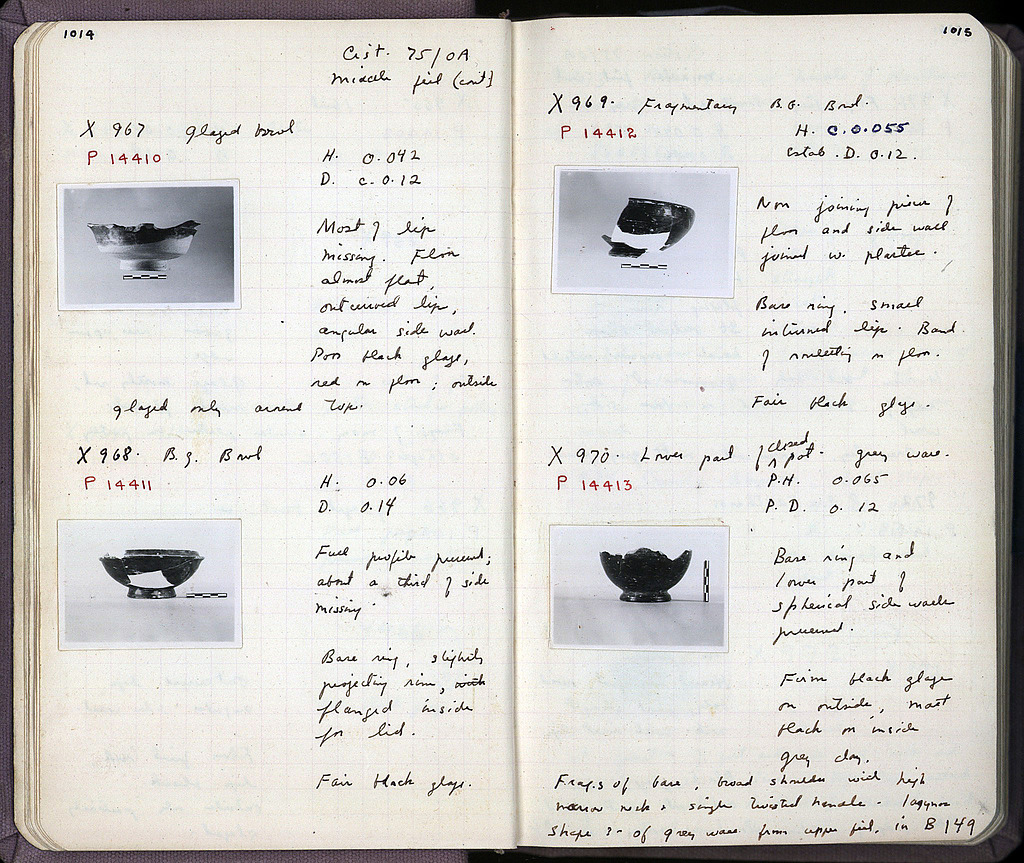 1014
Cist. 75/OA
Middle fill (cont)
X 967 Glazed bowl
P 14410
H. 0.042
D. c. 0.12
Most of lip
missing. Floor
almost flat,
outcurved lip,
angular side wall.
Poor black glaze,
red on floor; outside
glazed only around top.
X 968. B.g. Bowl
P 14411
H. 0.06
D. 0.14
Full profile preserved;
about a third of side
missing.
Base ring, slightly
projecting rim, with
flanged inside
for lid.
Fair black glaze.
1015
X 969. Fragmentary B.G. Bowl.
P 14412
H. C.0.055
Estab. D. 0.12.
Non joining pieces of
floor and side wall
joined w. plaster.
Base ring, small
inturned lip. Band
of rouletting on floor.
Fair black glaze.
X 970. Lower part of closed pot. grey ware.
P 14413
P.H. 0.065
P.D. 0.12
Base ring and
lower part of
spherical side walls
preserved.
Firm black glaze
on outside, matt
black on inside
grey clay.
Frags of base, broad shoulder with high
narrow neck & single twisted handle - lagynos
shape?- of grey ware from upper fill, in B 149